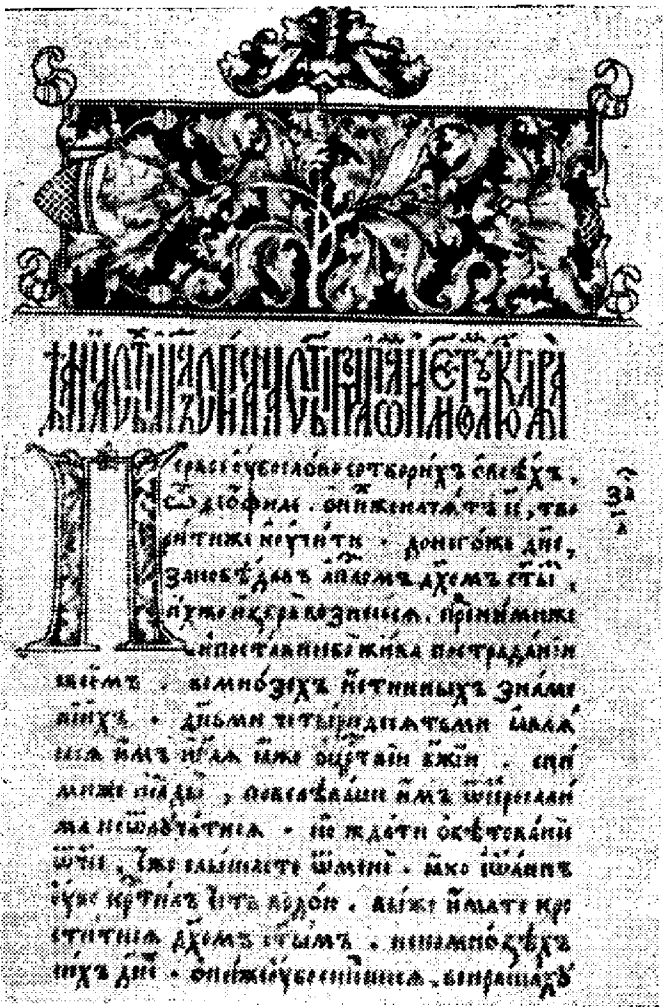 Первоеоубословосотворихъ ѡвсѣхъ,
ѽ деѡ́филе . ѻнихженачатъ іс҃, тво
ритижеиѹчити . донегоже дн҃е,
заповѣдавъ апⷭ҇лѡмъ дх҃омъ ст҃ы ,
ихжеизбравознесеся . преднимиже
ипоставиcебежива пострадании
своемъ . вомнозехъ истинныхъ знаме
нїихъ . дньми четыредесѧтьми ꙗвлѧ
ѧсѧ имъ игл҃ѧ ꙗже ѻцрⷭ҇твїи бж҃їи . сни
миже иꙗды , повелѣваше имъ ѿіерослали
ма неѿлѹчатисѧ . но ждати обѣтованїѧ
ѿч҃е , еже слышасте ѿмене . ꙗко іѡаннъ
оубо крⷭ҇тилъ есть водою . выже имате кре
ститисѧ дх҃омъ ст҃ымъ . непомнозѣхъ
сихъ дн҃е . ѻнижеоубосшедшесѧ . вопрашахꙋ